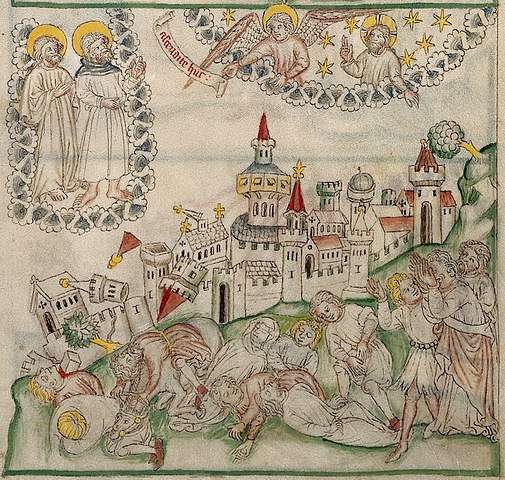 ascendite huc